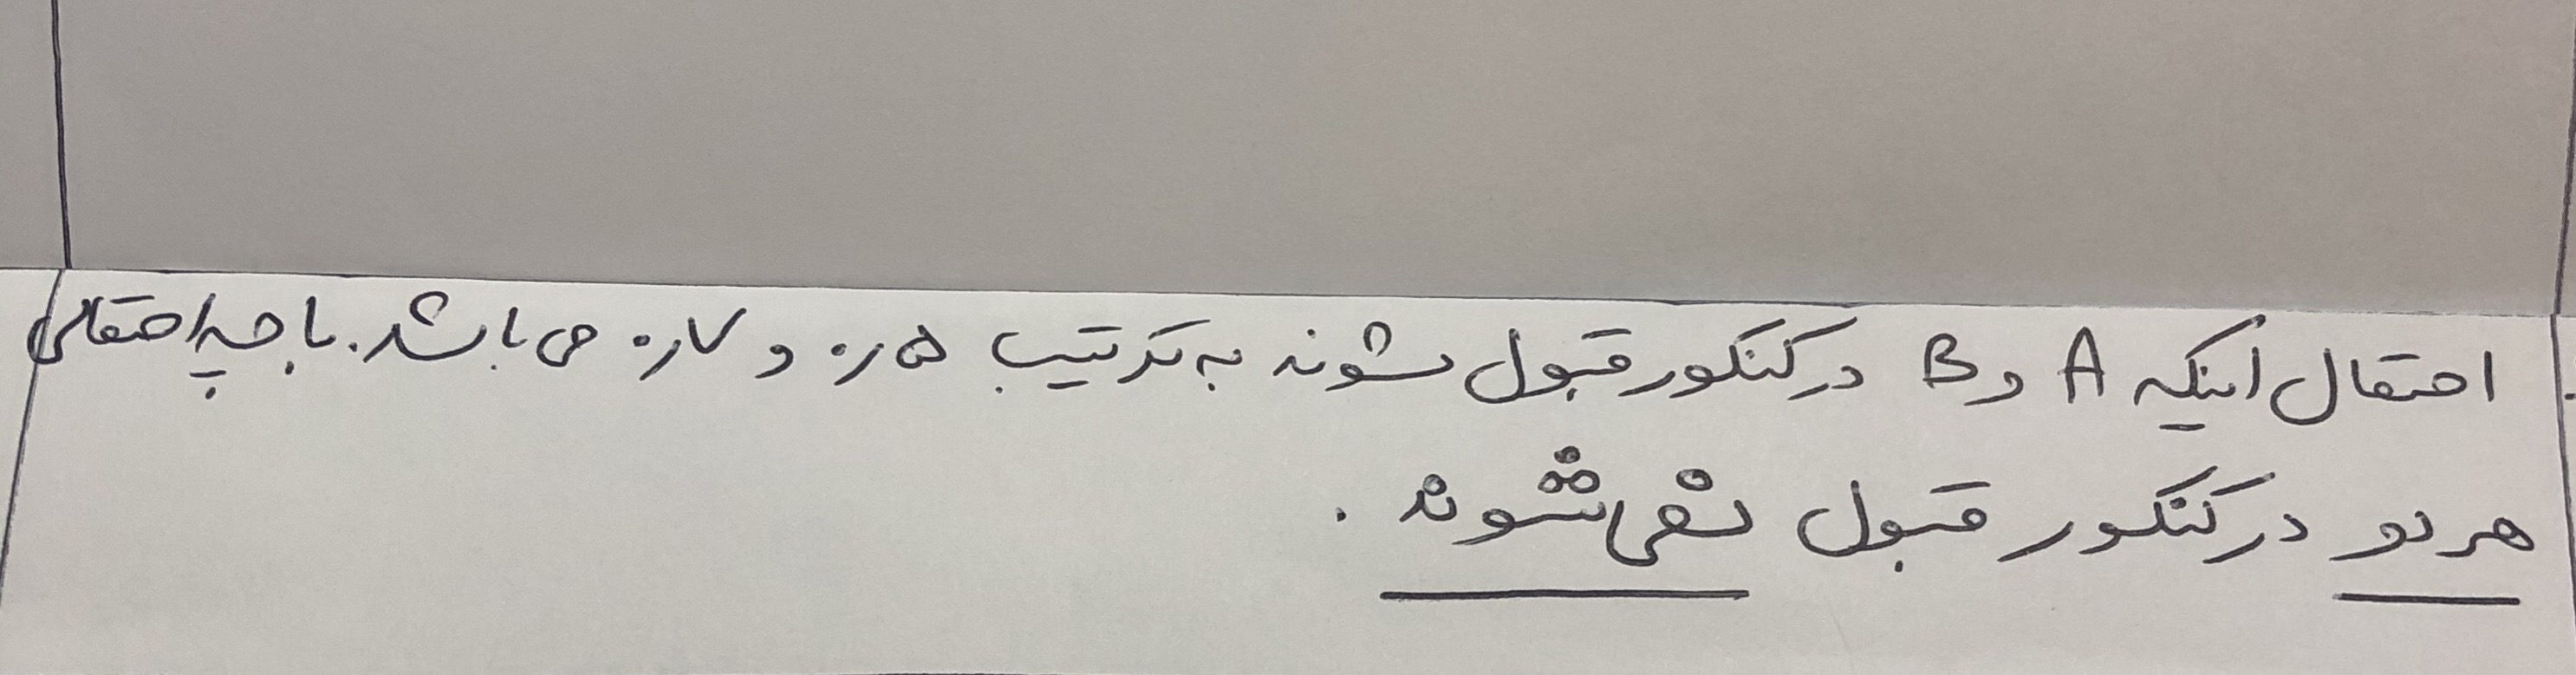 احتمال اینکه A و B در کنکور قبول شوند به ترتیب ۰٫۵ و ۰٫۷ می باشد. با چه احتمالی
هر دو در کنکور قبول نمی شوند.